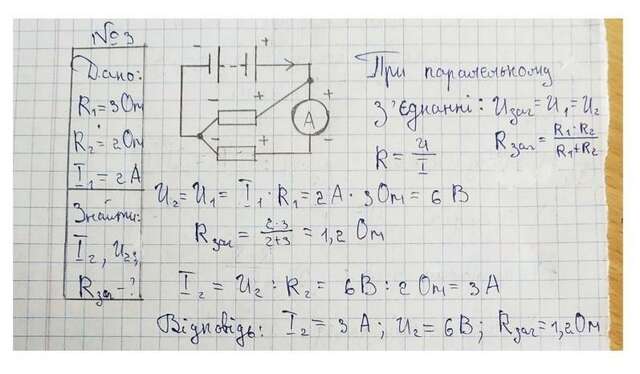 №3
Дано:
R₁=3Ом
R₂=2Ом
I₁=2А
Знайти:
I₂, U₂;
Rзаг-?
- +
- +
A
+ -
При паралельному
з'єднанні: Uзаг=U₁=U₂
R=U/I Rзаг=R₁·R₂/R₁+R₂
U₂=U₁= I₁·R₁=2А·3Ом=6В
Rзаг=2·3/2+3=1,2 Ом
I₂ = U₂:R₂= 6В:2Ом=3А
Відповідь: I₂=3А; U₂=6В; Rзаг=1,2Ом